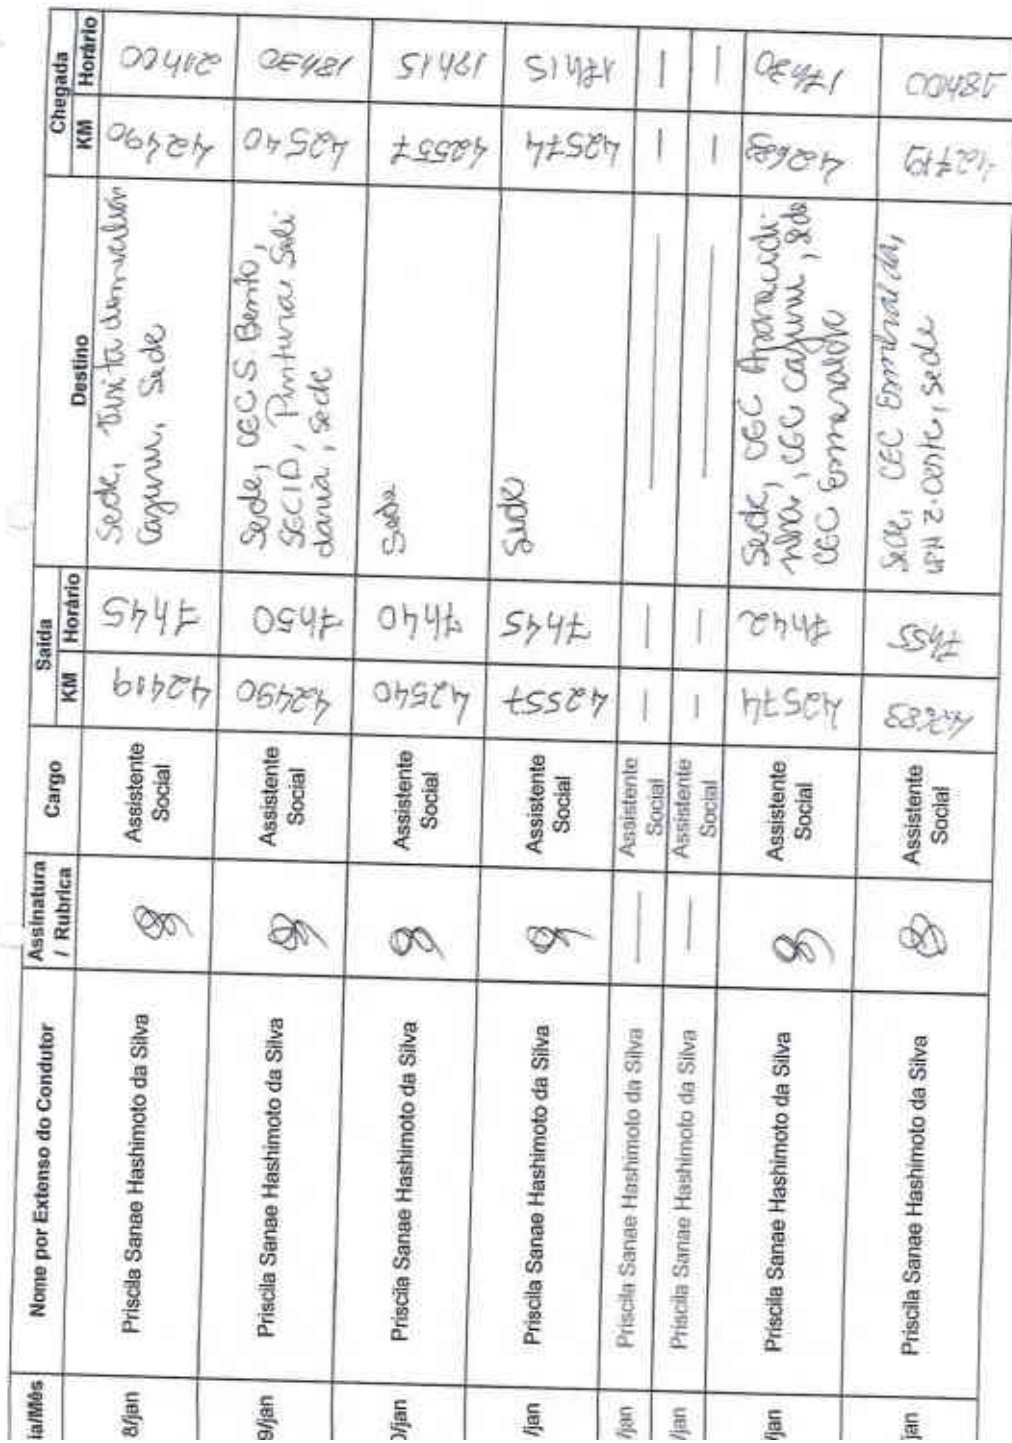 ia/Mês Nome por Extenso do Condutor Assinatura / Rubrica Cargo Saída Chegada
KM Horário Destino KM Horário
8/jan Priscila Sanae Hashimoto da Silva Assistente Social 42419 7h45 Sede, Visita domiciliar
Cajuru, Sede 42490 21h00
9/jan Priscila Sanae Hashimoto da Silva Assistente Social 42490 7h50 Sede, CEC S Bento,
SECID, Pinturas Soli
daria, sede 42540 18h30
0/jan Priscila Sanae Hashimoto da Silva Assistente Social 42540 7h40 Sede 42557 19h15
/jan Priscila Sanae Hashimoto da Silva Assistente Social 42557 7h45 Sede 42574 17h15
/jan Priscila Sanae Hashimoto da Silva — Assistente Social — — — — —
/jan Priscila Sanae Hashimoto da Silva — Assistente Social — — — — —
/jan Priscila Sanae Hashimoto da Silva Assistente Social 42574 7h42 Sede, CEC Aparecidi
nha, CEC Cajuru, sede
CEC Esmeralda 42683 17h30
jan Priscila Sanae Hashimoto da Silva Assistente Social 42683 7h55 Sede, CEC Esmeralda,
UPH Z.Oeste, sede 42719 18h00